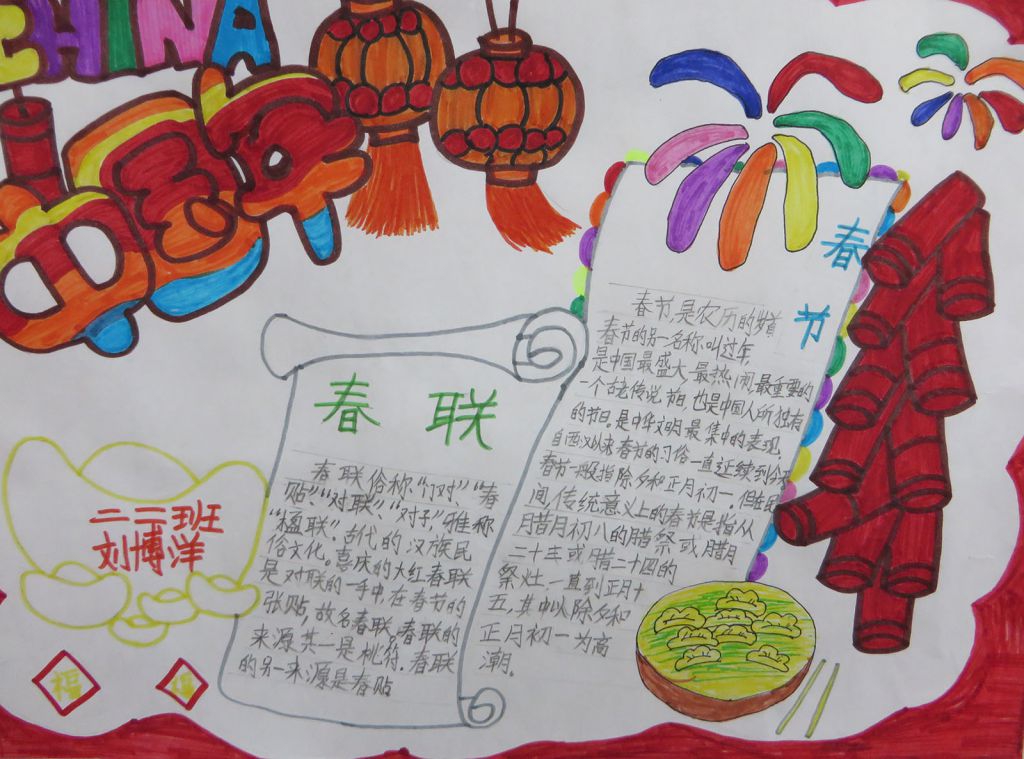 CHINA
中国年
春节
春节是农历的岁首
春节的另一名称叫过年,
是中国最盛大、最热闹、最重要的
一个古老传说节日,也是中国人所独有
的节日。是中华文明最集中的表现,
自西汉以来春节的习俗一直延续到今天
春节一般指除夕和正月初一。但在民
间,传统意义上的春节是指从
月腊月初八的腊祭或腊月
二十三或腊二十四的
祭灶,一直到正月十
五,其中以除夕和
正月初一为高
潮。
春联
春联俗称“门对”“春
贴”、“对联”、“对子”,雅称
“楹联”。古代的汉族民
俗文化。喜庆的大红春联
是对联的一手中,在春节的
张贴,故名春联,春联的
来源其一是桃符.春联
的另一来源是春贴
二二班
刘博洋
福
福